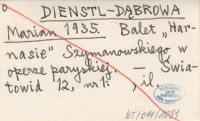 o
DIENSTL-DĄBROWA
Marian 1935. Balet „Har-
nasie" Szymanowskiego w
operze paryskiej. — Świa-
towid 12, nr 1: , il.
bt/011/1081